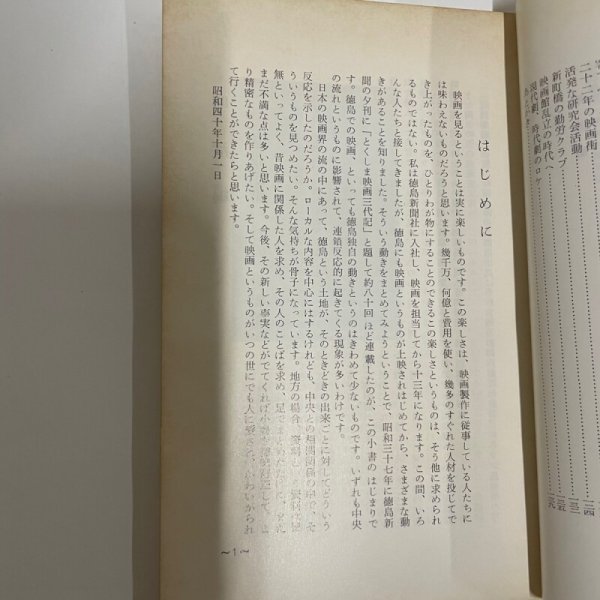 二十二年の映画術
活発な研究会活動
新町橋の勤労クラブ
映画館乱立の時代へ
現代劇、時代劇のロケ
はじめに
映画を見るということは実に楽しいものです。この楽しさは、映画製作に従事している人たちに
は味わえないものだろうと思います。幾千万、何億と費用を使い、幾多のすぐれた人材を投じてで
き上がったものを、ひとりわが物にすることのできるこの楽しさというものは、そう他に求められ
るものではない。私は徳島新聞社に入社し、映画を担当してから十三年になります。この間、いろ
んな人たちと接してきましたが、徳島にも映画というものが上映されはじめてから、さまざまな動
きがあることを知りました。そういう動きをまとめてみようということで、昭和三十七年に徳島新
聞の夕刊に「とくしま映画三代記」と題して約八十回ほど連載したのが、この小書のはじまりで
す。徳島での映画、といっても徳島独自の動きというのはきわめて少ないものです。いずれも中央
の流れというものに影響されて、連鎖反応的に起きてくる現象が多いわけです。
日本の映画界の流の中にあって、徳島という土地が、そのときどきの出来ごとに対してどういう
反応を示したのだろうか。ローカルな内容を中心にはするけれども、中央との相関関係の中で、そ
ういうものを見つめたい。そんな気持ちが骨子になっています。地方の場合、
無といってよく、昔映画に関係した人を求め、その人のことばを求め、足で
まだ不満な点は多いと思います。今後、その新しい事実などがでてくれば
り精密なものを作りあげたい。そして映画というものがいつの世にでも人に愛
て行くことができたらと思います。
昭和四十年十月一日
〜1〜